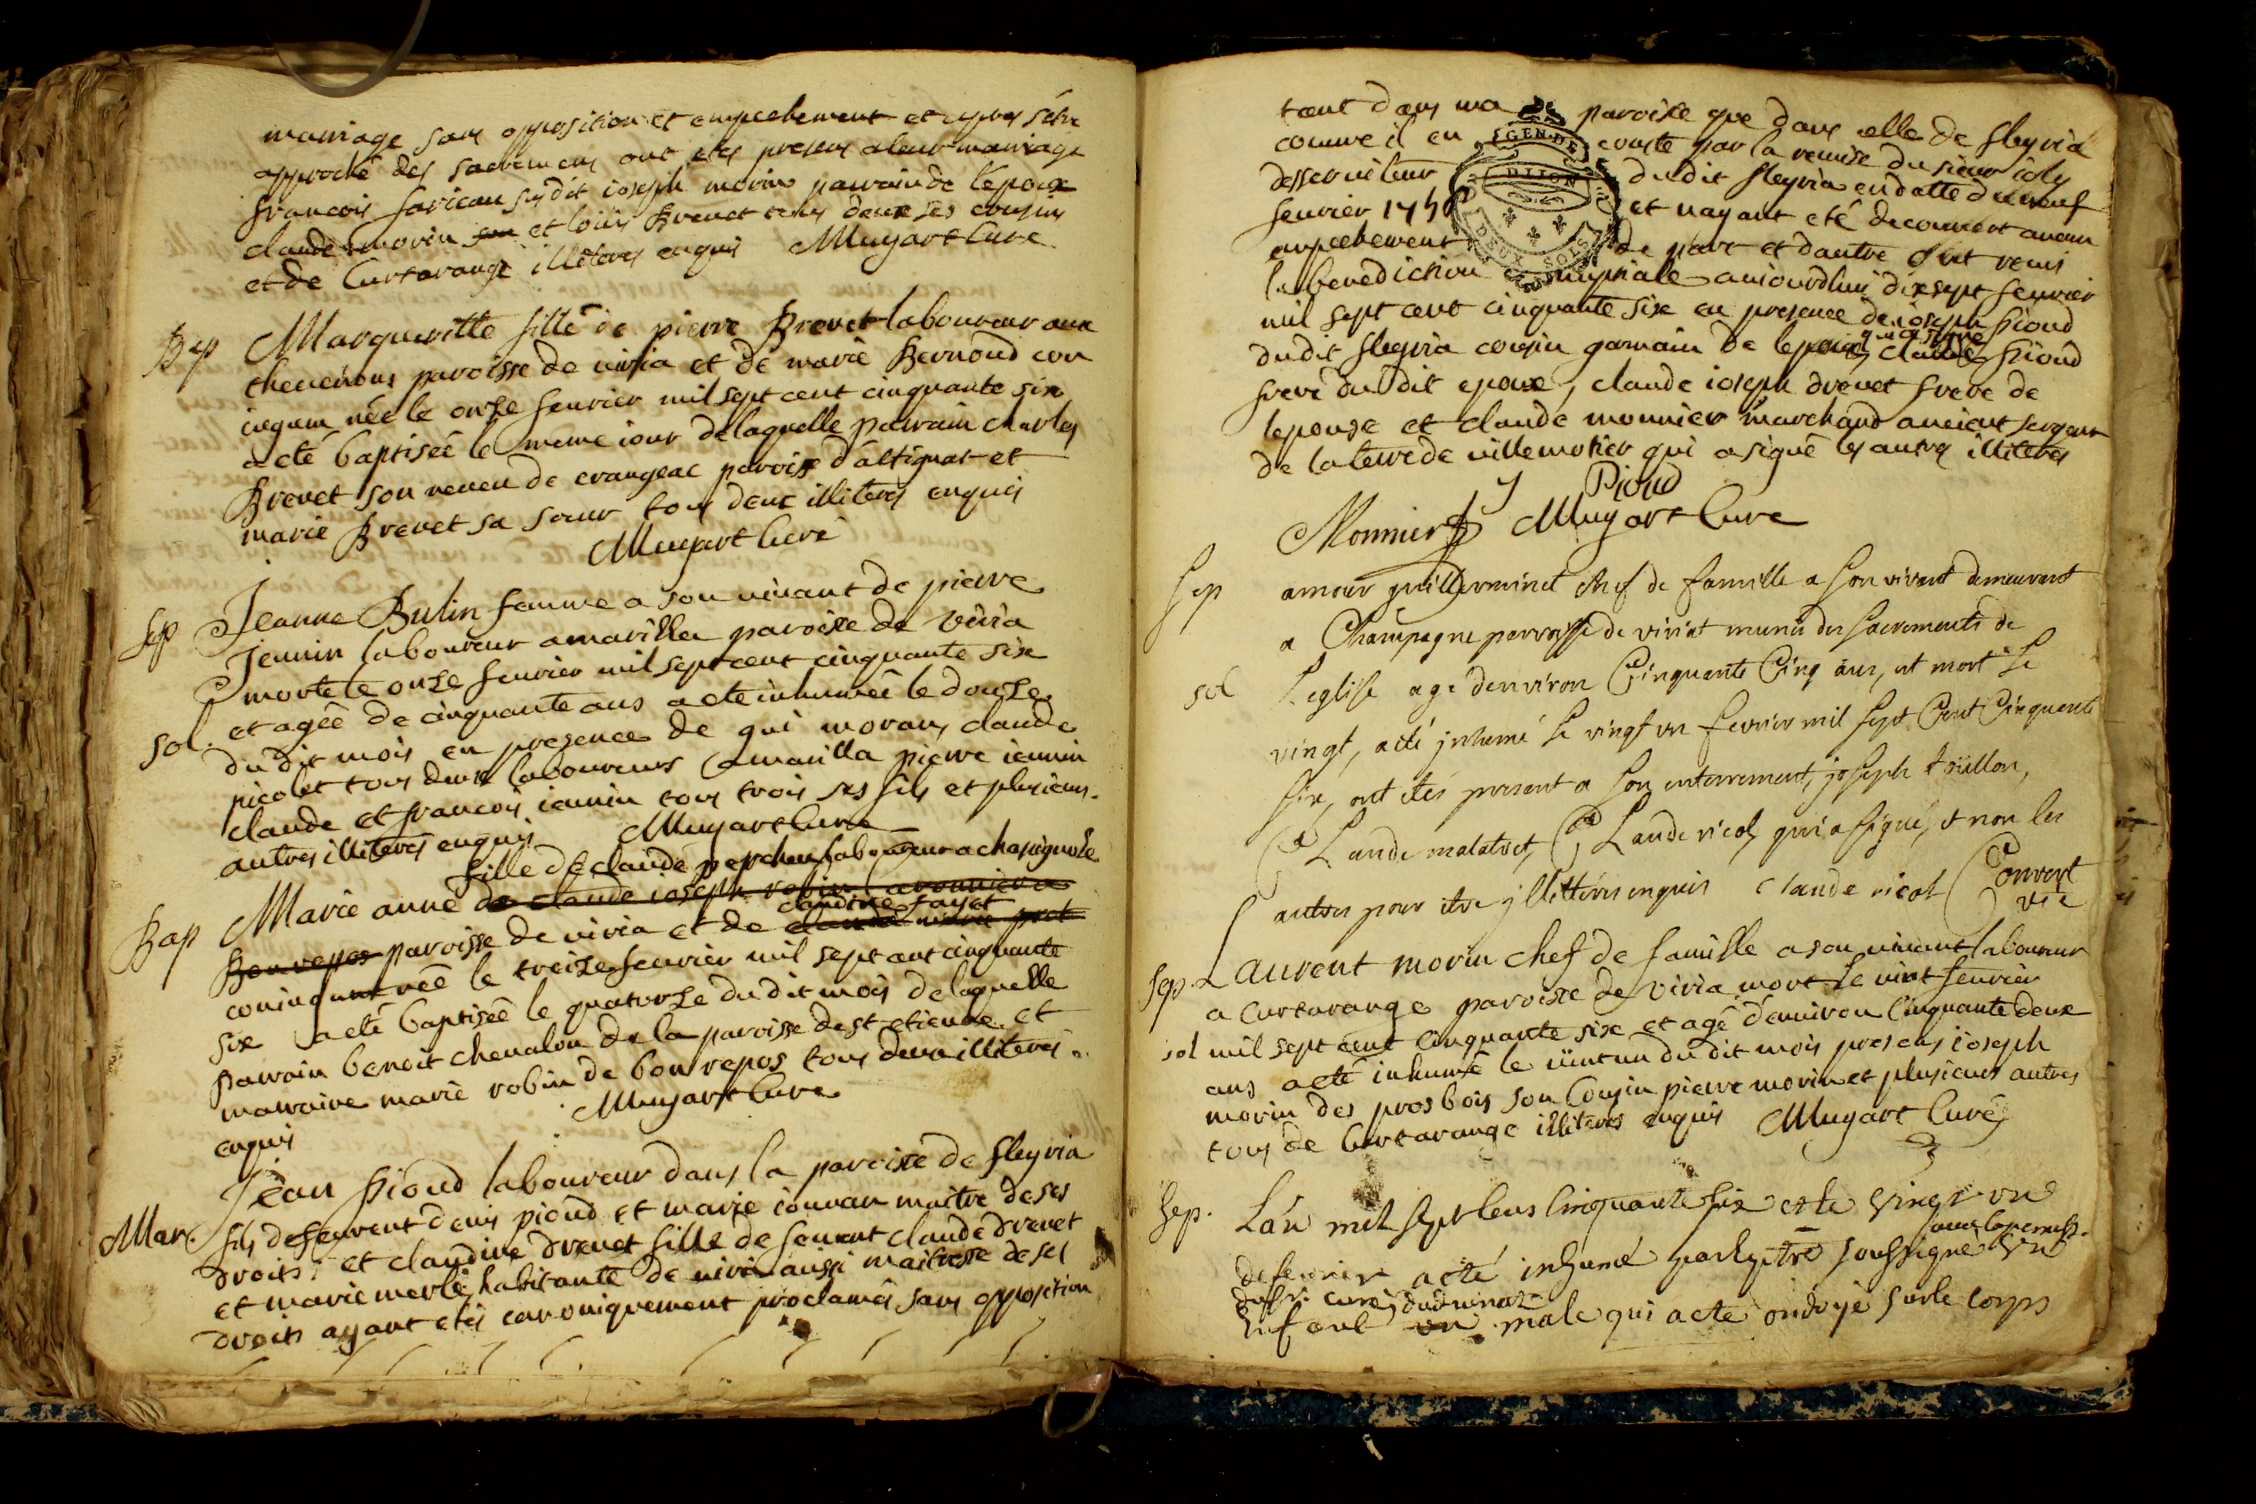 mariage sans opposition et empechement et apres setre
approché des sacremens ont etes presens a leur mariage
francois favicau susdit ioseph morin parrain de lepoux
claude morin et loüis Brevet tous deux ses cousins
et de Curtarange illiteres enquis Mugart Curé
Bap Margueritte fille de pierre Brevet laboureur aux
thevenons paroisse de viria et de marie Bernoud con
iugum née le onze feuvrier mil sept cent cinquante six
a eté baptiseé le meme iour de laquelle parrain charles
Brevet son neveu de crangeac paroisse d'attignat et
marie Brevet sa sœur tous deux illiteres enquis
Mugart Curé
sep Jeanne Bulin femme a son vivant de pierre
Jeunin laboureur a marilla paroisse de viria
morte le onze feuvrier mil sept cent cinquante six
et ageé de cinquante ans a ete inhumeé le douze
sol. du dit mois en presence de gui morans claude
nicolet tous deux laboureurs a marilla pierre ieunin
claude et francois ieunin tous trois ses fils et plusieurs
autres illiteres enquis Mugart Curé
fille de claude perchou laboureur a chasignole
Bap Marie anne de claude ioseph robin
claudine fayet
Bonrepos paroisse de viria et de
coniugum neé le treize feuvrier mil sept ant cinquante
six a eté baptiseé le quatorze du dit mois de laquelle
parrain benoit chevalon de la paroisse de st etienne et
marraine marie robin de bon repos tous deux illiteres
enquis Mugart Curé
Jean pioud laboureur dans la paroisse de fleyria
Mar. fils de feuvent denis pioud et marie iouvan maitre de ses
droits ; et claudine drevet fille de feuvent claude drevet
et marie merle habitante de viria aussi maitresse de ses
droits ayant etés canoniquement proclamés sans opposition
tant dans ma paroisse que dans celle de fleyria
comme il en conste par la remise du sieur ioly
desserviteur dudit fleyria en datte du neuf
feuvrier 1756 et nayant eté decouvert aucun
empechement de part et dautre ont reçus
la benediction nuptiale auiourdhui dixsept feuvrier
mil sept cent cinquante six en presence de ioseph pioud
qui a signe
dudit fleyria cousin garmain de lepoux, claude pioud
frere du dit epoux, claude ioseph drevet frere de
lepouse et claude monnier marchand ancient sergent
de la terre de villemotier qui a signé les autres illiteres
Pioud
Monnier Mugart Curé
GEN. DE
DIJON
DEUX SOLS
Sep amour guillerminet chef de famille a son vivant demeurant
a Champagne parroisse de viriat munis des sacrements de
sol Leglise agé denviron Cinquante Cinq ans, est mort le
vingt, a eté inhumé le vingt un fevrier mil sept Cent Cinquante
six, ont étés present a son enterrement, joseph truillon,
Claude malatret, Claude nicol, qui a signé, et non les
autres pour etre jllitterés enquis Claude nicol Convert
vic
Sep. Laurent morin chef de famille a son vivant laboureur
a curtarange paroisse de viria mort le vint feuvrier
sol mil sept cent cinquante six et agé denviron Cinquante deux
ans a eté inhumé le vintun du dit mois presens ioseph
morin des pros bois son Cousin pierre morin et plusieurs autres
tous de Curtarange illiteres enquis Mugart Curé
Sep. Lan mil sept Cens Cinquante six et le vingt un
avec la permiss.
de fevrier a eté inhumé par le ptre soussigné un
du Sr. curé dud viriat
Enfant un male qui a eté ondoyé sur le corps